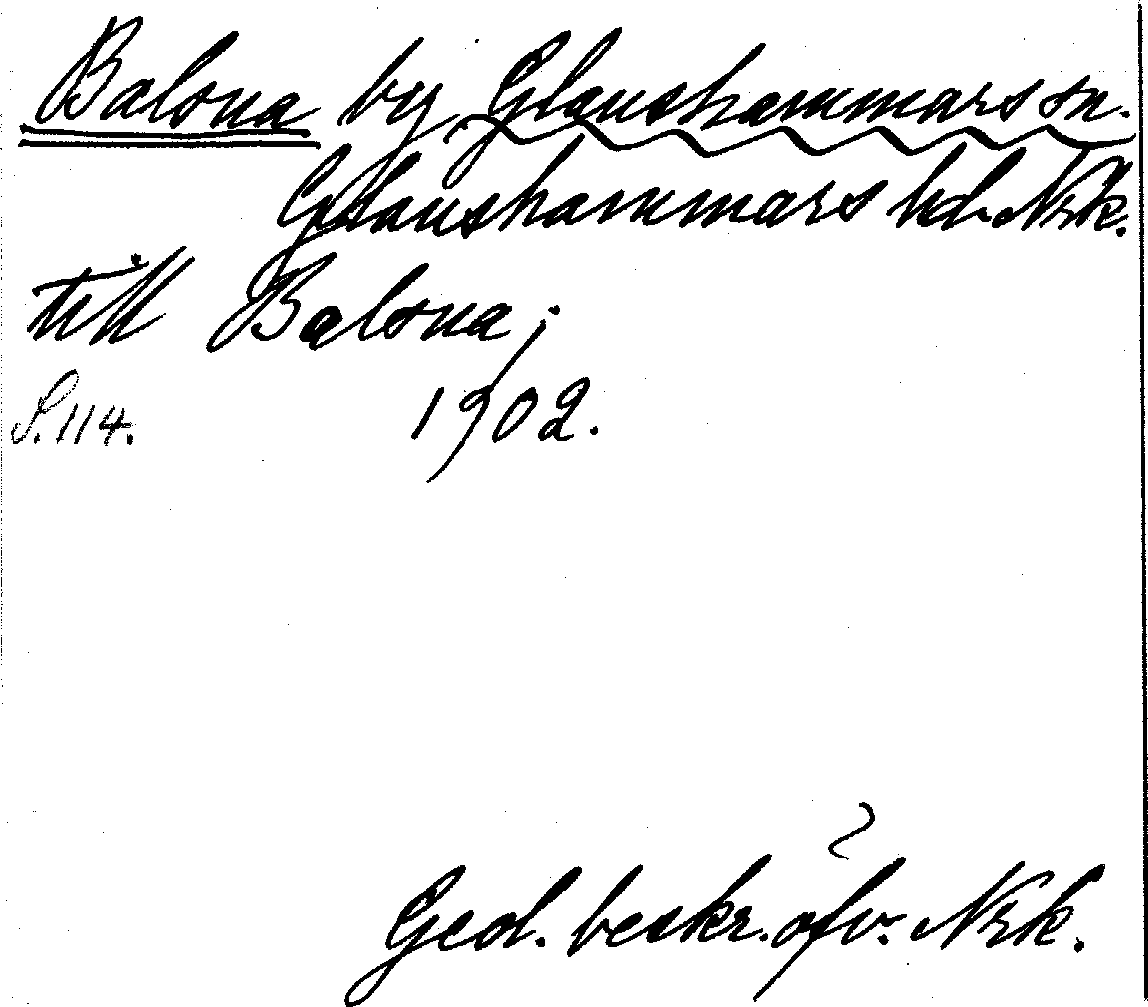 Balsna by Glanshammars sn.
Glanshammars hd. Nrk.
till Balsna;
S. 114. 1902.
Geol. beskr. öfv. Nrk.